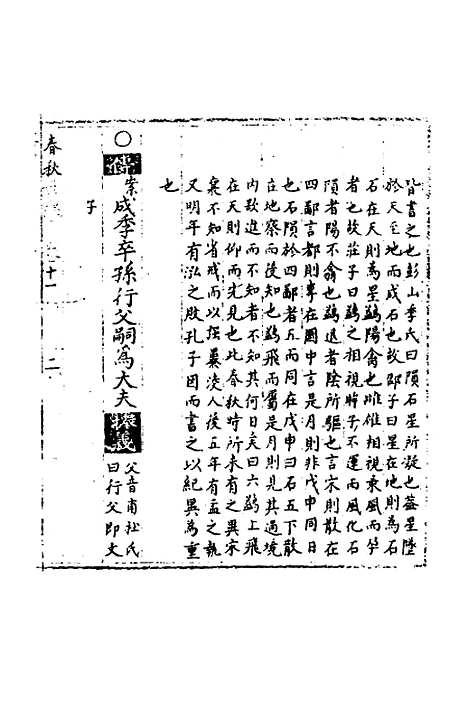 皆書之也彭山季氏曰隕石星所凝也蓋星墜
於天至地而成石也故邵子曰星在地則為石
石在天則為星鷁陽禽也雌雄相視乘風而孕
者也故莊子曰鷁之相視眸子不運而風化石
隕者陽不翕也鷁退者陰所驅也言宋則散在
四鄙言都則專在國中言是月則非戊申同日
也石隕於四鄙者五而同在戊申曰石五下散
在地察而後知也鷁飛而屬是月則見其過境
內歘進而不知者不知其何日矣曰六鷁上飛
在天則仰而先見也此春秋時所未有之異宋
襄不知省戒而以強暴淩人後五年有盂之執
又明年有泓之敗孔子因而書之以紀異為重
也
○傳案成季卒孫行父嗣為大夫 據義 父音甫杜氏
曰行父即文
子
春秋 十一 二